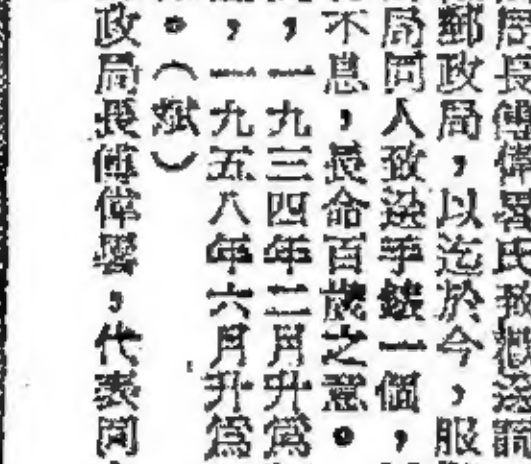 局長傅偉署氏致歡送詞
郵政局，以迄於今，服
局同人致送手錶一個，
不息，長命百歲之意。
，一九三四年二月升為
，一九五八年六月升為
。（斌）
政局長傅偉署，代表同